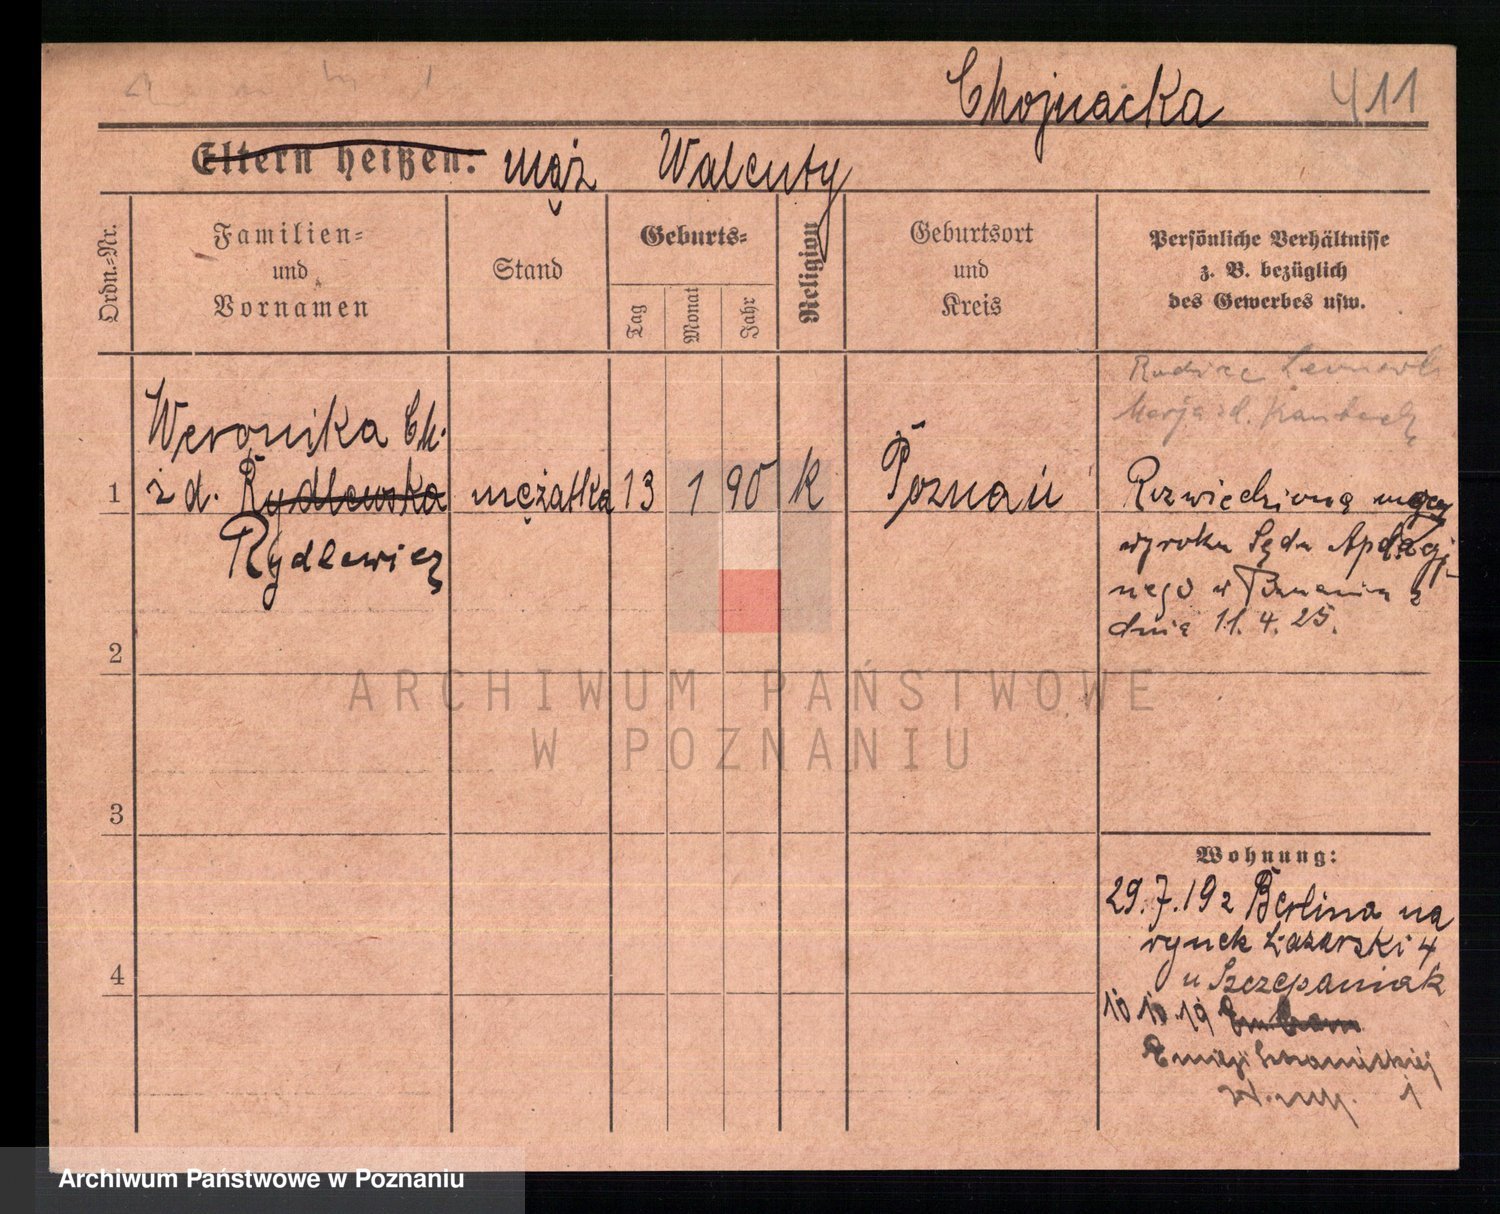 Chojnacka 411
Eltern heißen: mąż Walenty
Ordn.-Nr.
Familien-
und
Vornamen
Stand
Geburts-
Tag
Monat
Jahr
Religion
Geburtsort
und
Kreis
Persönliche Verhältnisse
z. B. bezüglich
des Gewerbes usw.
Weronika Ch.
1 z d. Rydlewska mężatka 13 1 90 k Poznań
Rydlewicz
Rodzice
Marja
Rozwiedziona mocą
wyroku Sądu Apelacyj-
nego w Poznaniu z
dnia 11. 4. 25.
2
3
4
ARCHIWUM PAŃSTWOWE
W POZNANIU
Wohnung:
29.7.19 z Berlina na
rynek Łazarski 4
u Szczepaniak
10 10 19
Emilji 1
Archiwum Państwowe w Poznaniu